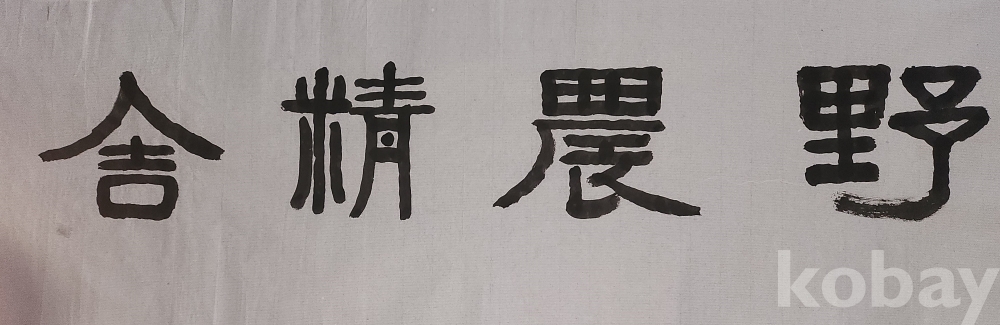 野農精舍
kobay